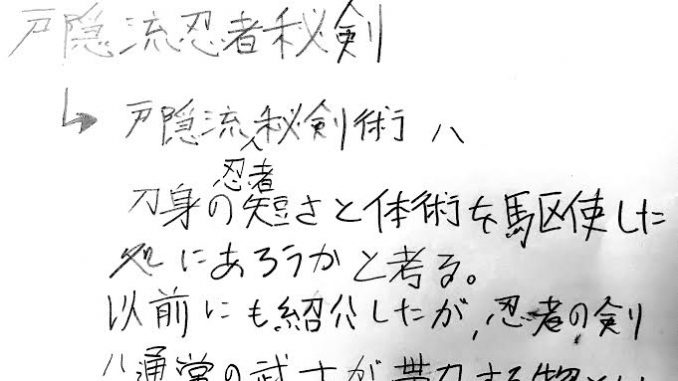 戸隠流忍者秘剣
戸隠流忍者秘剣術ハ
刀身の短さと体術を駆使した
処にあろうかと考る。
以前にも紹介したが、忍者の剣
ハ通常の武士が帯刀する物とい